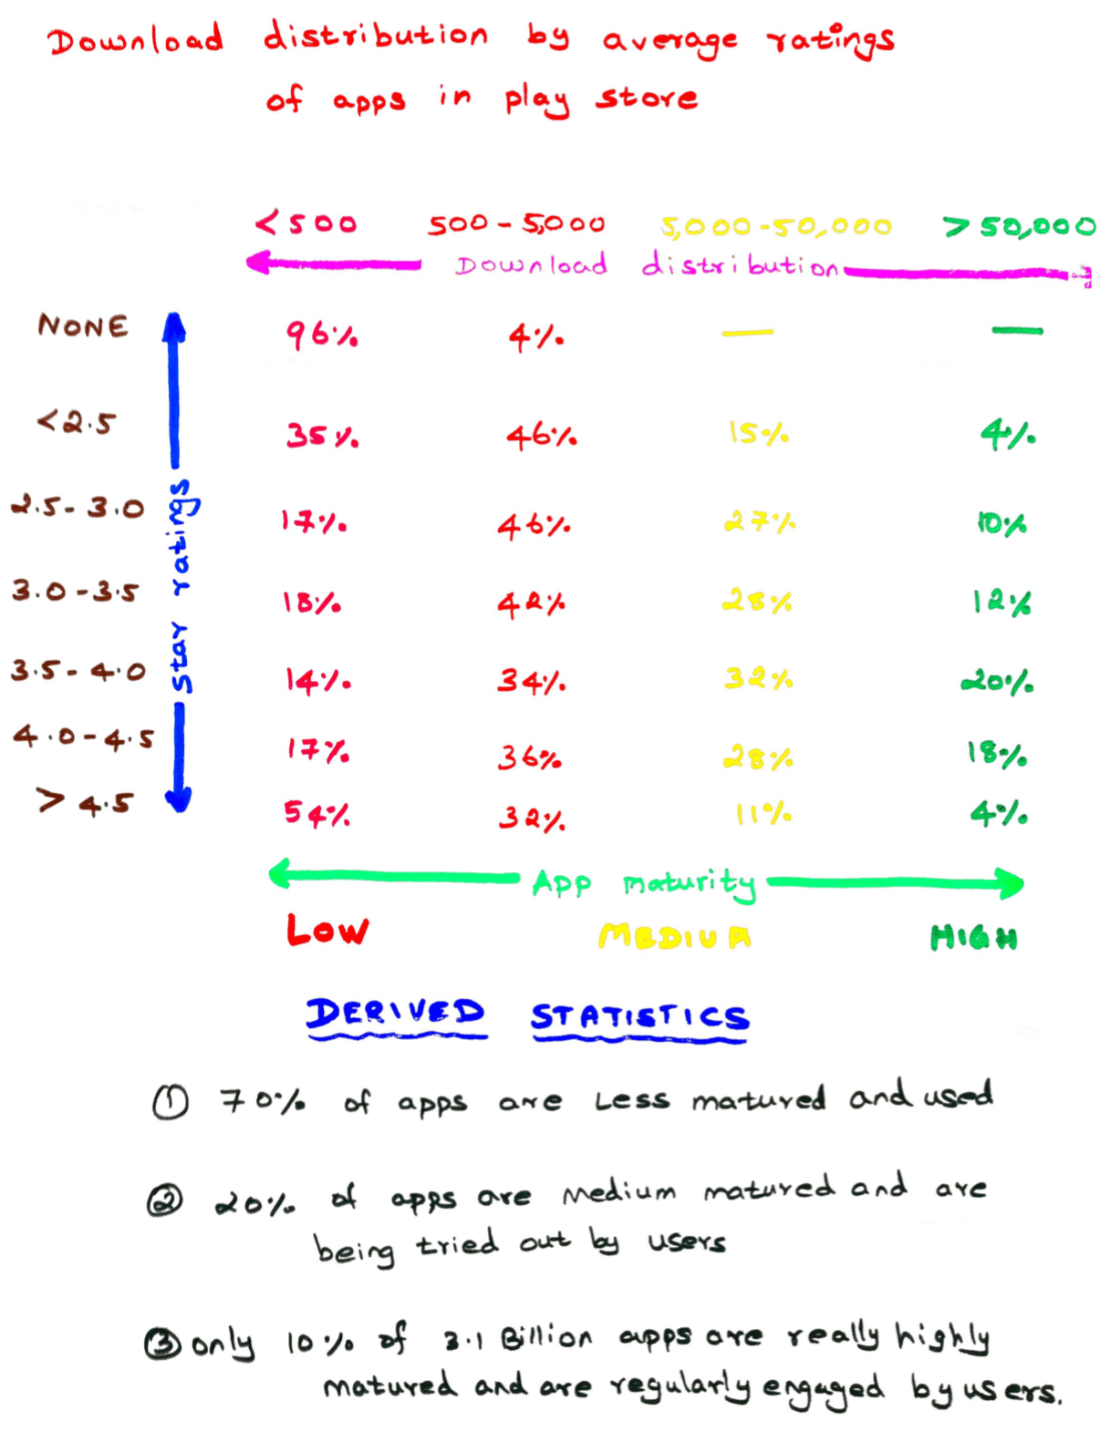 Download distribution by average ratings
of apps in play store
<500 500-5,000 5,000-50,000 >50,000
Download distribution
NONE 96% 4% — —
<2.5 35% 46% 15% 4%
2.5-3.0 17% 46% 27% 10%
3.0-3.5 18% 42% 28% 12%
3.5-4.0 14% 34% 32% 20%
4.0-4.5 17% 36% 28% 18%
>4.5 54% 32% 11% 4%
Star ratings
App maturity
LOW MEDIUM HIGH
DERIVED STATISTICS
① 70% of apps are Less matured and used
② 20% of apps are medium matured and are
being tried out by users
③ only 10% of 3.1 Billion apps are really highly
matured and are regularly engaged by users.